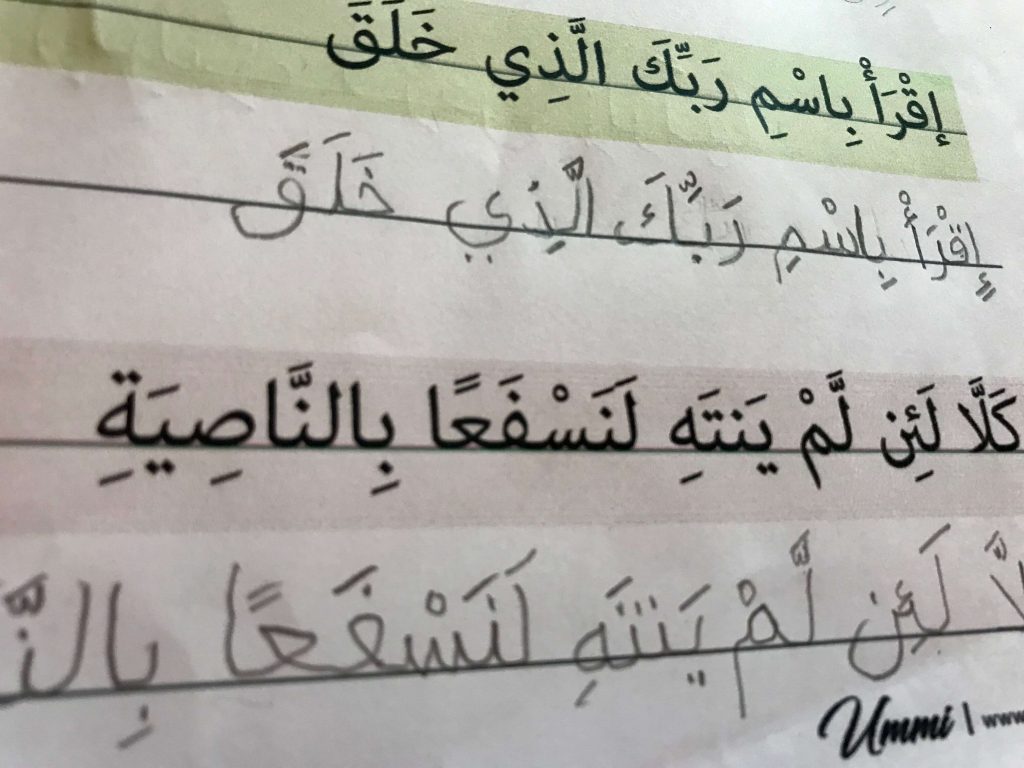 إقْرَأْ بِاسْمِ رَبِّكَ الَّذِي خَلَقَ
إِقْرَأْ بِاسْمِ رَبِّكَ الَّذِي خَلَقَ
كَلَّا لَئِن لَّمْ يَنتَهِ لَنَسْفَعًا بِالنَّاصِيَةِ
لَئِن لَّمْ يَنتَهِ لَنَسْفَعًا بِالنَّ
Ummi | www